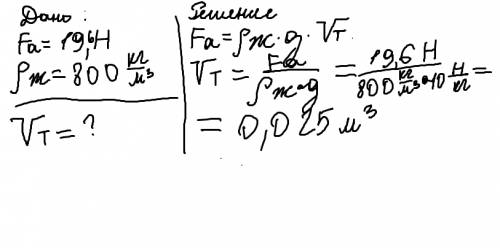 Дано:
Fа = 19,6 Н
ρж = 800 кг/м³
Vт = ?
Решение
Fа = ρж·g·Vт
Vт = Fа/ρж·g = 19,6 Н/800 кг/м³·10 Н/кг =
= 0,025 м³